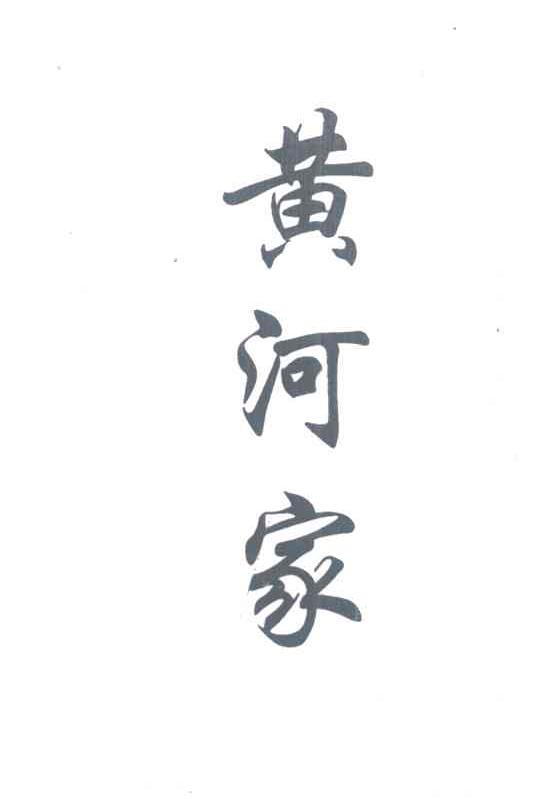 黄河家